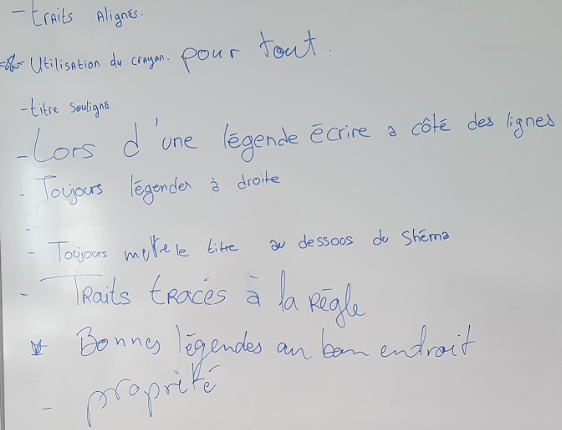 - traits Alignés.
- Utilisation du crayon. pour tout.
- titre souligné.
- Lors d'une légende écrire a côté des lignes
- Toujours légender à droite
- Toujours mettre le titre au dessoos du Shéma
- Traits tracés à la Règle
Bonnes légendes au bon endrait
- propriété